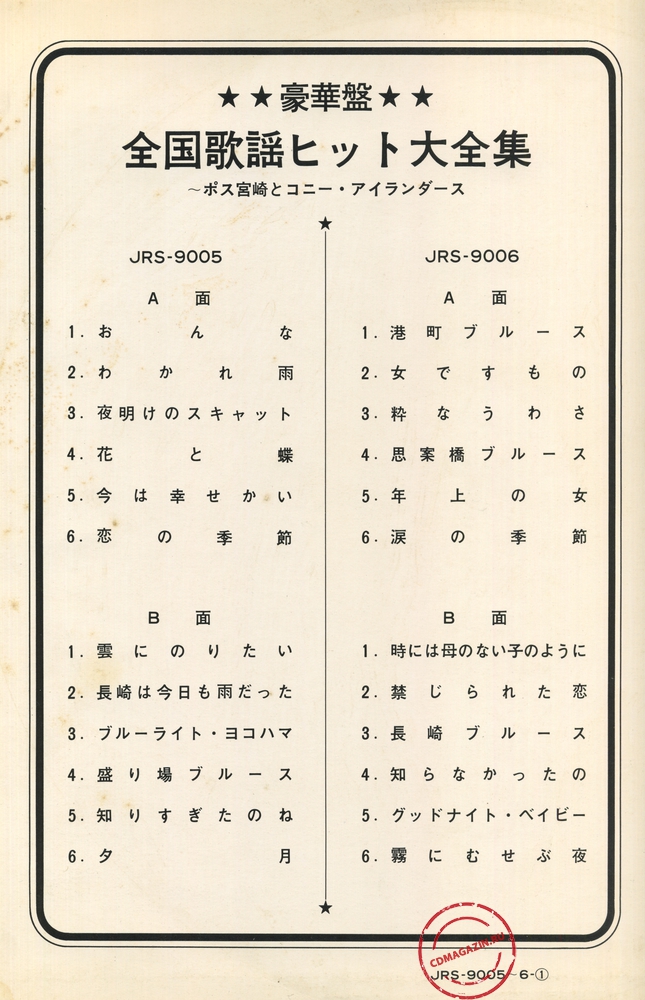 ★★豪華盤★★
全国歌謡ヒット大全集
～ポス宮崎とコニー・アイランダース
JRS-9005
A 面
1. おんな
2. わかれ雨
3. 夜明けのスキャット
4. 花と蝶
5. 今は幸せかい
6. 恋の季節
B 面
1. 雲にのりたい
2. 長崎は今日も雨だった
3. ブルーライト・ヨコハマ
4. 盛り場ブルース
5. 知りすぎたのね
6. 夕月
JRS-9006
A 面
1. 港町ブルース
2. 女ですもの
3. 粋なうわさ
4. 思案橋ブルース
5. 年上の女
6. 涙の季節
B 面
1. 時には母のない子のように
2. 禁じられた恋
3. 長崎ブルース
4. 知らなかったの
5. グッドナイト・ベイビー
6. 霧にむせぶ夜
CDMAGAZIN.RU
JRS-9005~6-①